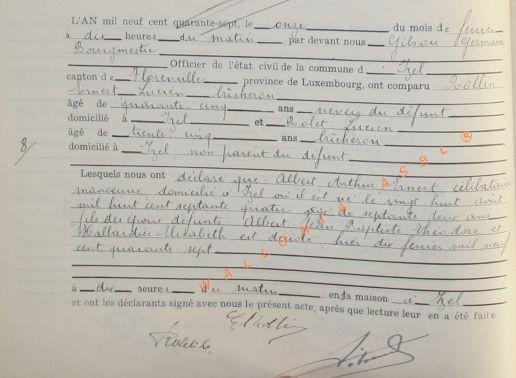 L'AN mil neuf cent quarante-sept, le onze du mois de février
à dix heures du matin par devant nous Gilson Germain
Bourgmestre
Officier de l'état civil de la commune d'Izel
canton de Florenville province de Luxembourg, ont comparu Rollin
Ernest Lucien bûcheron
âgé de quarante cinq ans neveu du défunt
domicilié à Izel et Rolet Lucien
âgé de trente cinq ans bûcheron
domicilié à Izel, non parent du défunt
8/
Lesquels nous ont déclaré que Albert Arthur Ernest célibataire
manœuvre domicilié à Izel où il est né le vingt huit août
mil huit cent septante quatre âgé de septante deux ans
fils des époux défunts Albert Jean Baptiste Théodore et
Elisabeth est décédé hier dix février mil neuf
cent quarante sept
à dix heures du matin en la maison à Izel
et ont les déclarants signé avec nous le présent acte, après que lecture leur en a été faite
E Rollin
WALLONIA ASBL ®